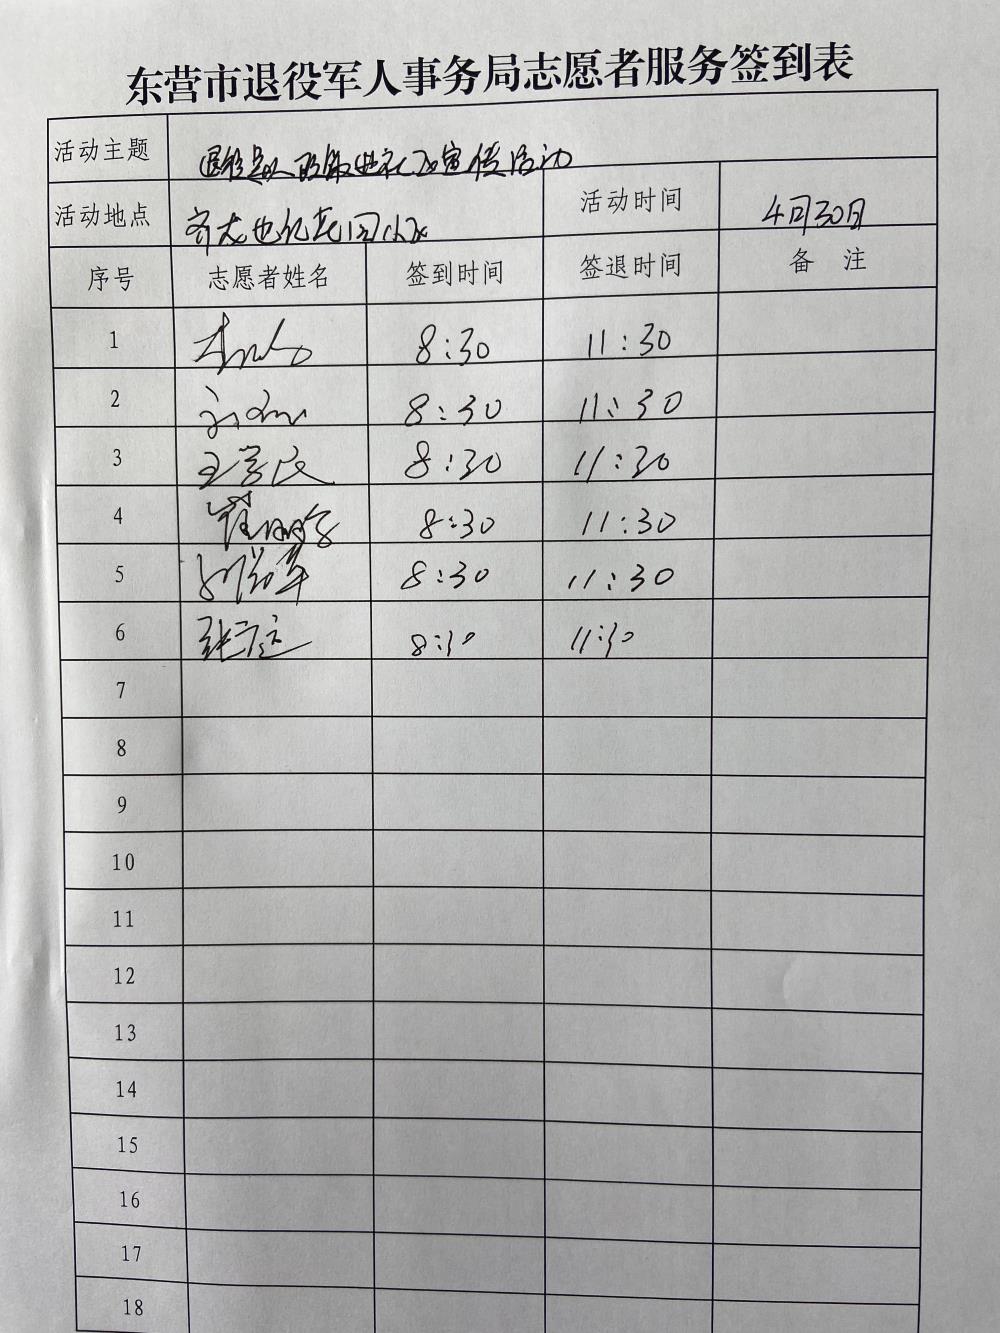 东营市退役军人事务局志愿者服务签到表
活动主题 退役军人政策进社区宣传活动
活动地点 世纪花园小区 活动时间 4月30日
序号 志愿者姓名 签到时间 签退时间 备 注
1 8:30 11:30
2 8:30 11:30
3 王学民 8:30 11:30
4 8:30 11:30
5 8:30 11:30
6 8:30 11:30
7
8
9
10
11
12
13
14
15
16
17
18